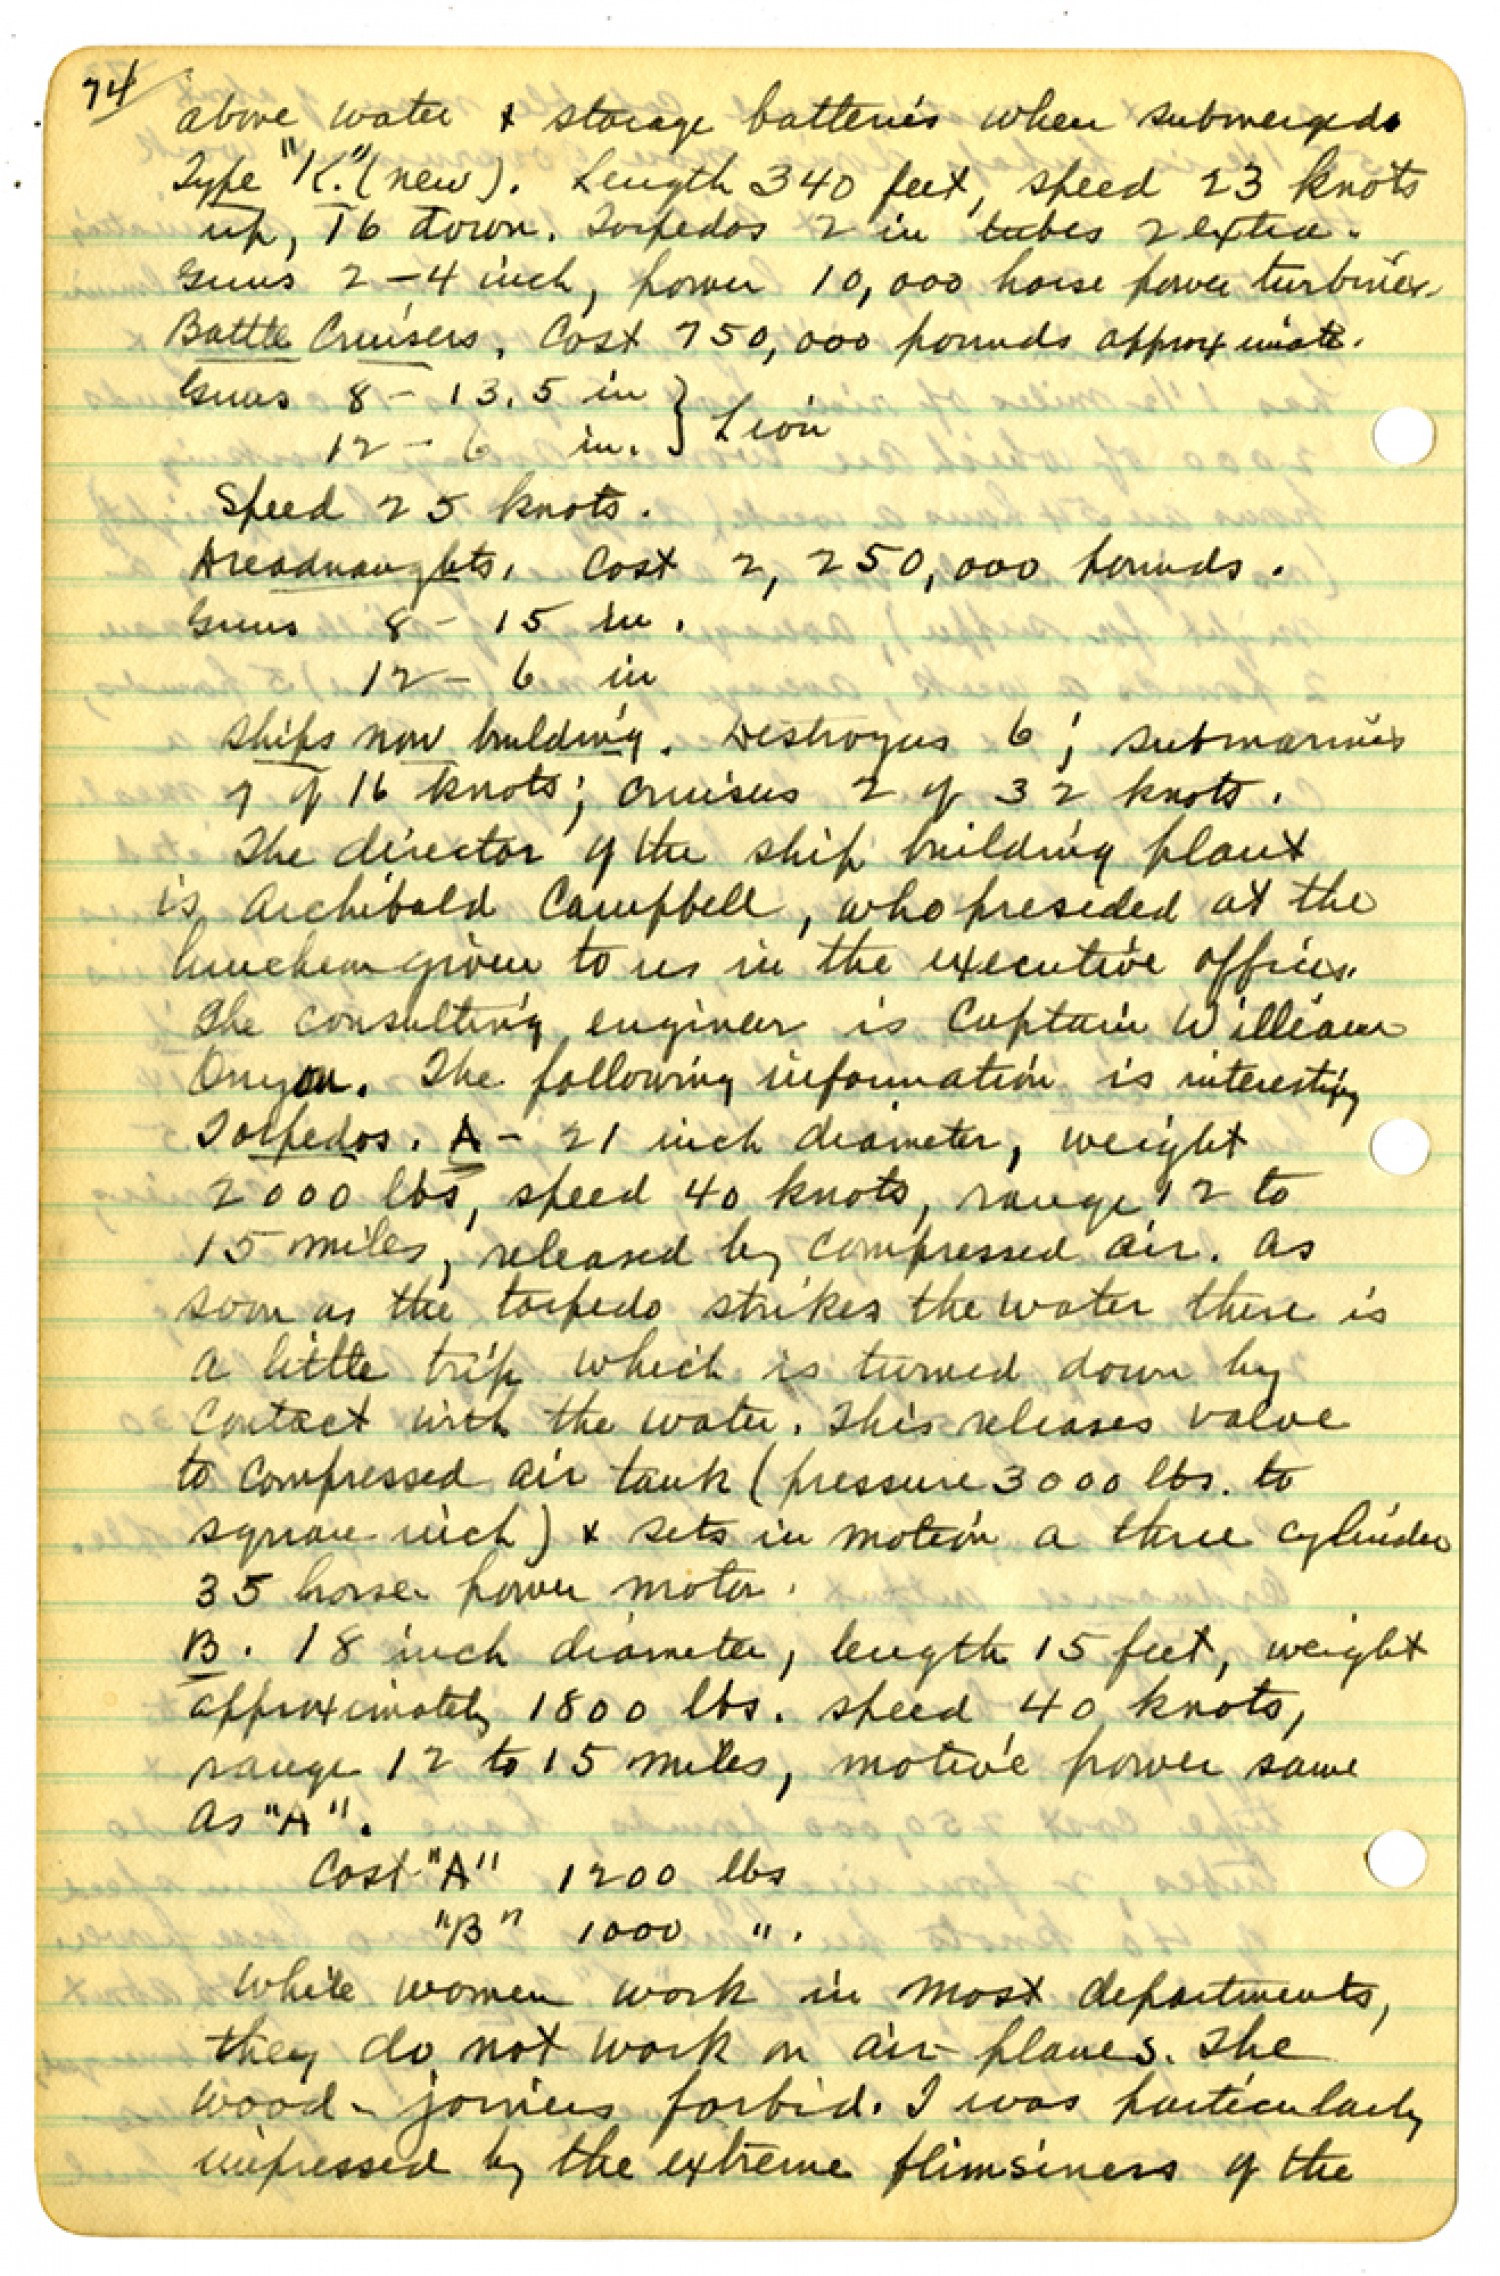 74
above water & storage batteries when submerged.
Type "K." (new). Length 340 feet, speed 23 knots
up, 16 down. Torpedos 2 in tubes 2 extra.
Guns 2 – 4 inch, power 10,000 horse power turbines.
Battle Cruisers. Cost 750,000 pounds approximate.
Guns 8 – 13.5 in } Lion
12 – 6 in.
Speed 25 knots.
Dreadnaughts. Cost 2,250,000 pounds.
Guns 8 – 15 in.
12 – 6 in
Ships now building. Destroyers 6; submarines
7 of 16 knots; cruisers 2 of 32 knots.
The director of the ship building plant
is Archibald Campbell, who presided at the
luncheon given to us in the executive offices.
The consulting engineer is Captain William
The following information is interesting
Torpedos. A – 21 inch diameter, weight
2000 lbs, speed 40 knots, range 12 to
15 miles, released by compressed air. As
soon as the torpedo strikes the water there is
a little trip which is turned down by
contact with the water. This releases valve
to compressed air tank (pressure 3000 lbs. to
square inch) & sets in motion a three cylinder
35 horse power motor.
B. 18 inch diameter, length 15 feet, weight
approximately 1800 lbs. speed 40 knots,
range 12 to 15 miles, motive power same
as "A".
Cost "A" 1200 lbs
"B" 1000 " .
While women work in most departments,
they do not work on air planes. The
wood-joiners forbid. I was particularly
impressed by the extreme flimsiness of the